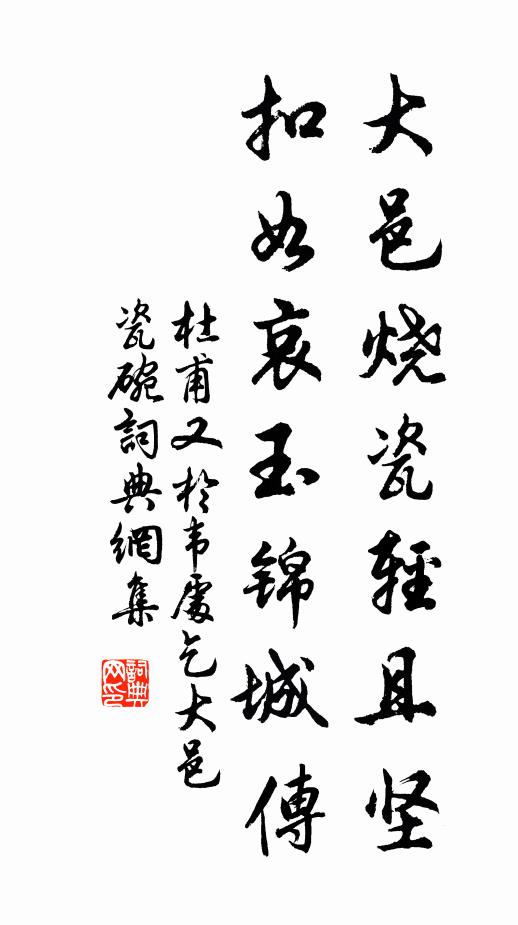 大邑烧瓷輕且坚
扣如哀玉锦城傳
杜甫又於韦處乞大邑
瓷碗詞典網集
詞典网印